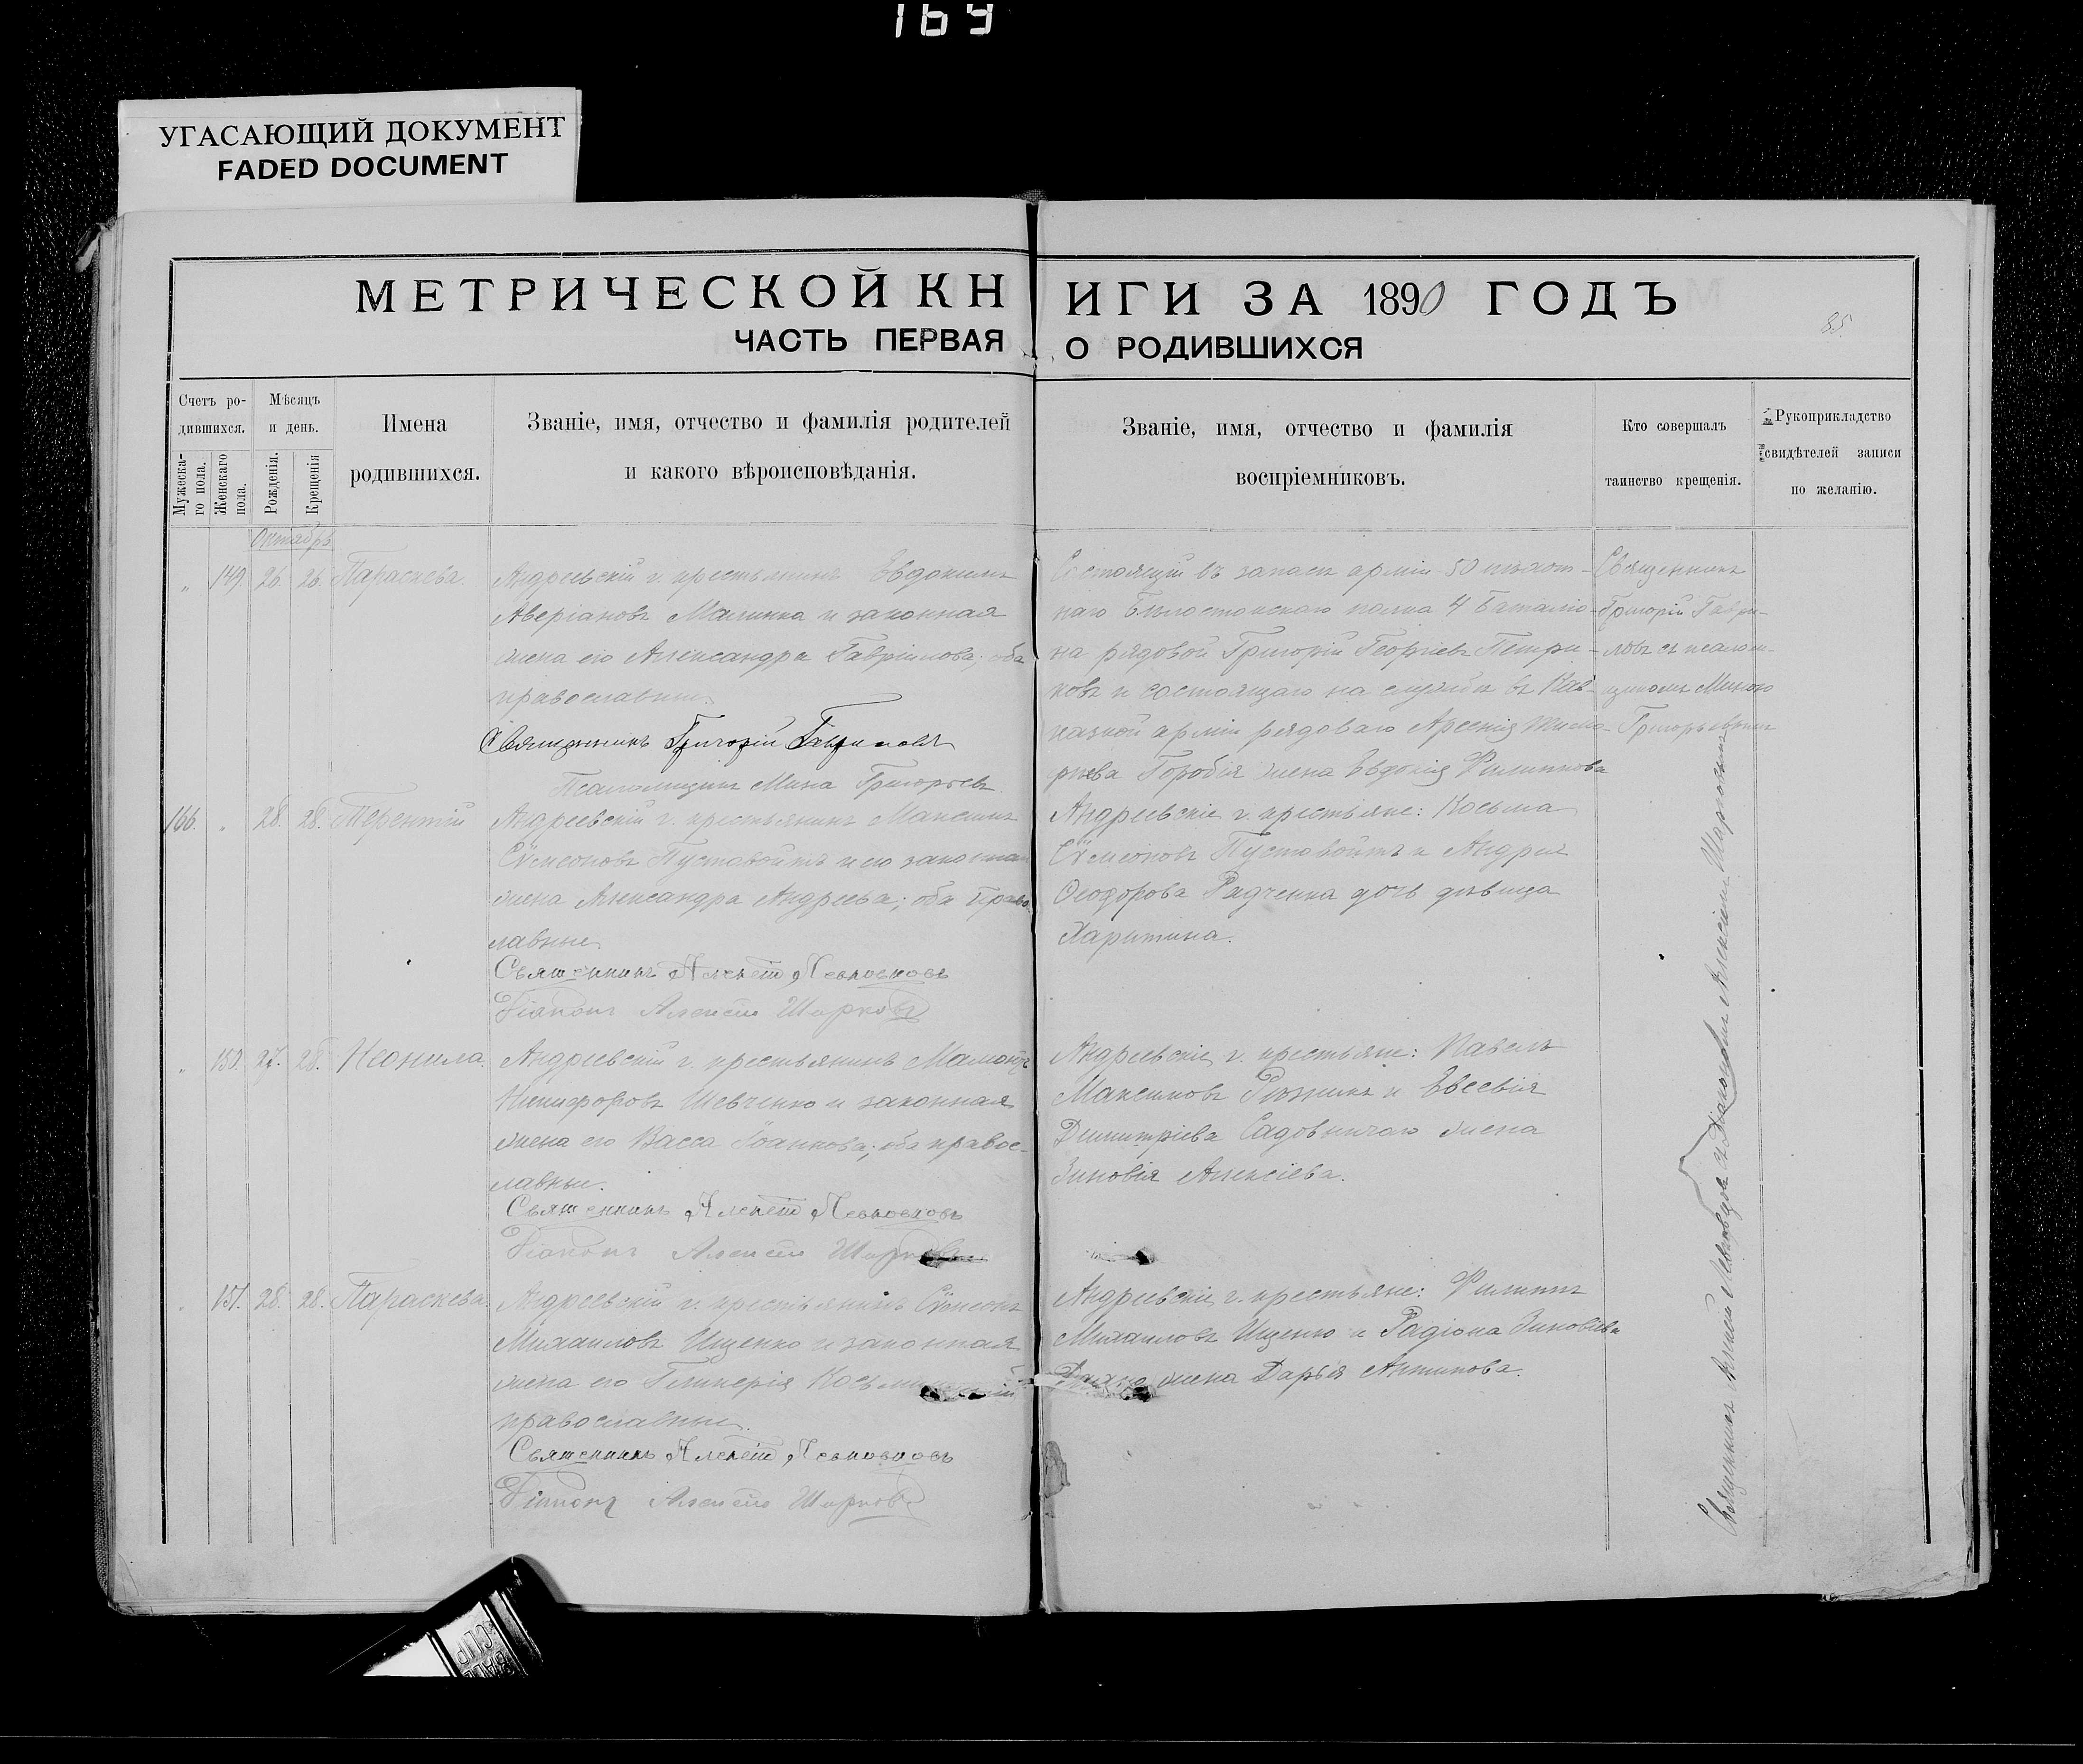 169
УГАСАЮЩИЙ ДОКУМЕНТ
FADED DOCUMENT
МЕТРИЧЕСКОЙ КНИГИ ЗА 1890 ГОДЪ
ЧАСТЬ ПЕРВАЯ О РОДИВШИХСЯ
85
Счетъ родившихся.
Мужескаго пола.
Женскаго пола.
Мѣсяцъ и день.
Рожденія.
Крещенія
Имена родившихся.
Званіе, имя, отчество и фамилія родителей
и какого вѣроисповѣданія.
Званіе, имя, отчество и фамилія
воспріемниковъ.
Кто совершалъ
таинство крещенія.
Рукоприкладство
свидѣтелей записи
по желанію.
Октябрь
" 149. 26. 26. Параскева.
Андреевскій г. крестьянинъ Евдокимъ
Аверіановъ Малинка и законная
жена его Александра Гавріилова; оба
православные.
Священникъ Григорій Гавриловъ
Псаломщикъ Мина Григорьевъ
Состоящій въ запасѣ арміи 50 пѣхот-
наго Бѣлостокскаго полка 4 Баталіо-
на рядовой Григорій Георгіевъ Петри-
ковъ и состоящаго на службѣ въ Кав-
казкой арміи рядоваго Арсенія Тимо-
рьева Горобія жена Евдокія Филиппова
Священникъ
Григорій Гаври-
ловъ съ псалом-
щикомъ Миною
Григорьевымъ
166. " 28. 28. Терентій
Андреевскій г. крестьянинъ Максимъ
Сѵмеоновъ Пустовойтъ и его законная
жена Александра Андреева; оба право-
лавные.
Священникъ Алексѣй
Діаконъ Алексѣй Шарковъ
Андреевскіе г. крестьяне: Косьма
Сѵмеоновъ Пустовойтъ и Андрея
Ѳеодорова Радченка дочь дѣвица
Харитина.
" 150. 27. 28. Неонила.
Андреевскій г. крестьянинъ Мамонтъ
Никифоровъ Шевченко и законная
жена его Васса Іоаннова; оба правос-
лавные.
Священникъ Алексѣй
Діаконъ Алексѣй Шарковъ
Андреевскіе г. крестьяне: Павелъ
Максимовъ Рѣзникъ и Евсевія
Димитріева Садовничаго жена
Зиновія Алексіева.
" 151. 28. 28. Параскева.
Андреевскій г. крестьянинъ Сѵмеонъ
Михаиловъ Ищенко и законная
жена его Гликерія
православные.
Священникъ Алексѣй
Діаконъ Алексѣй Шарковъ
Андреевскіе г. крестьяне: Филиппъ
Михаиловъ Ищенко и Радіона Зиновіева
жена Дарья Антипова.
Священникъ Алексій
съ Діакономъ Алексіемъ